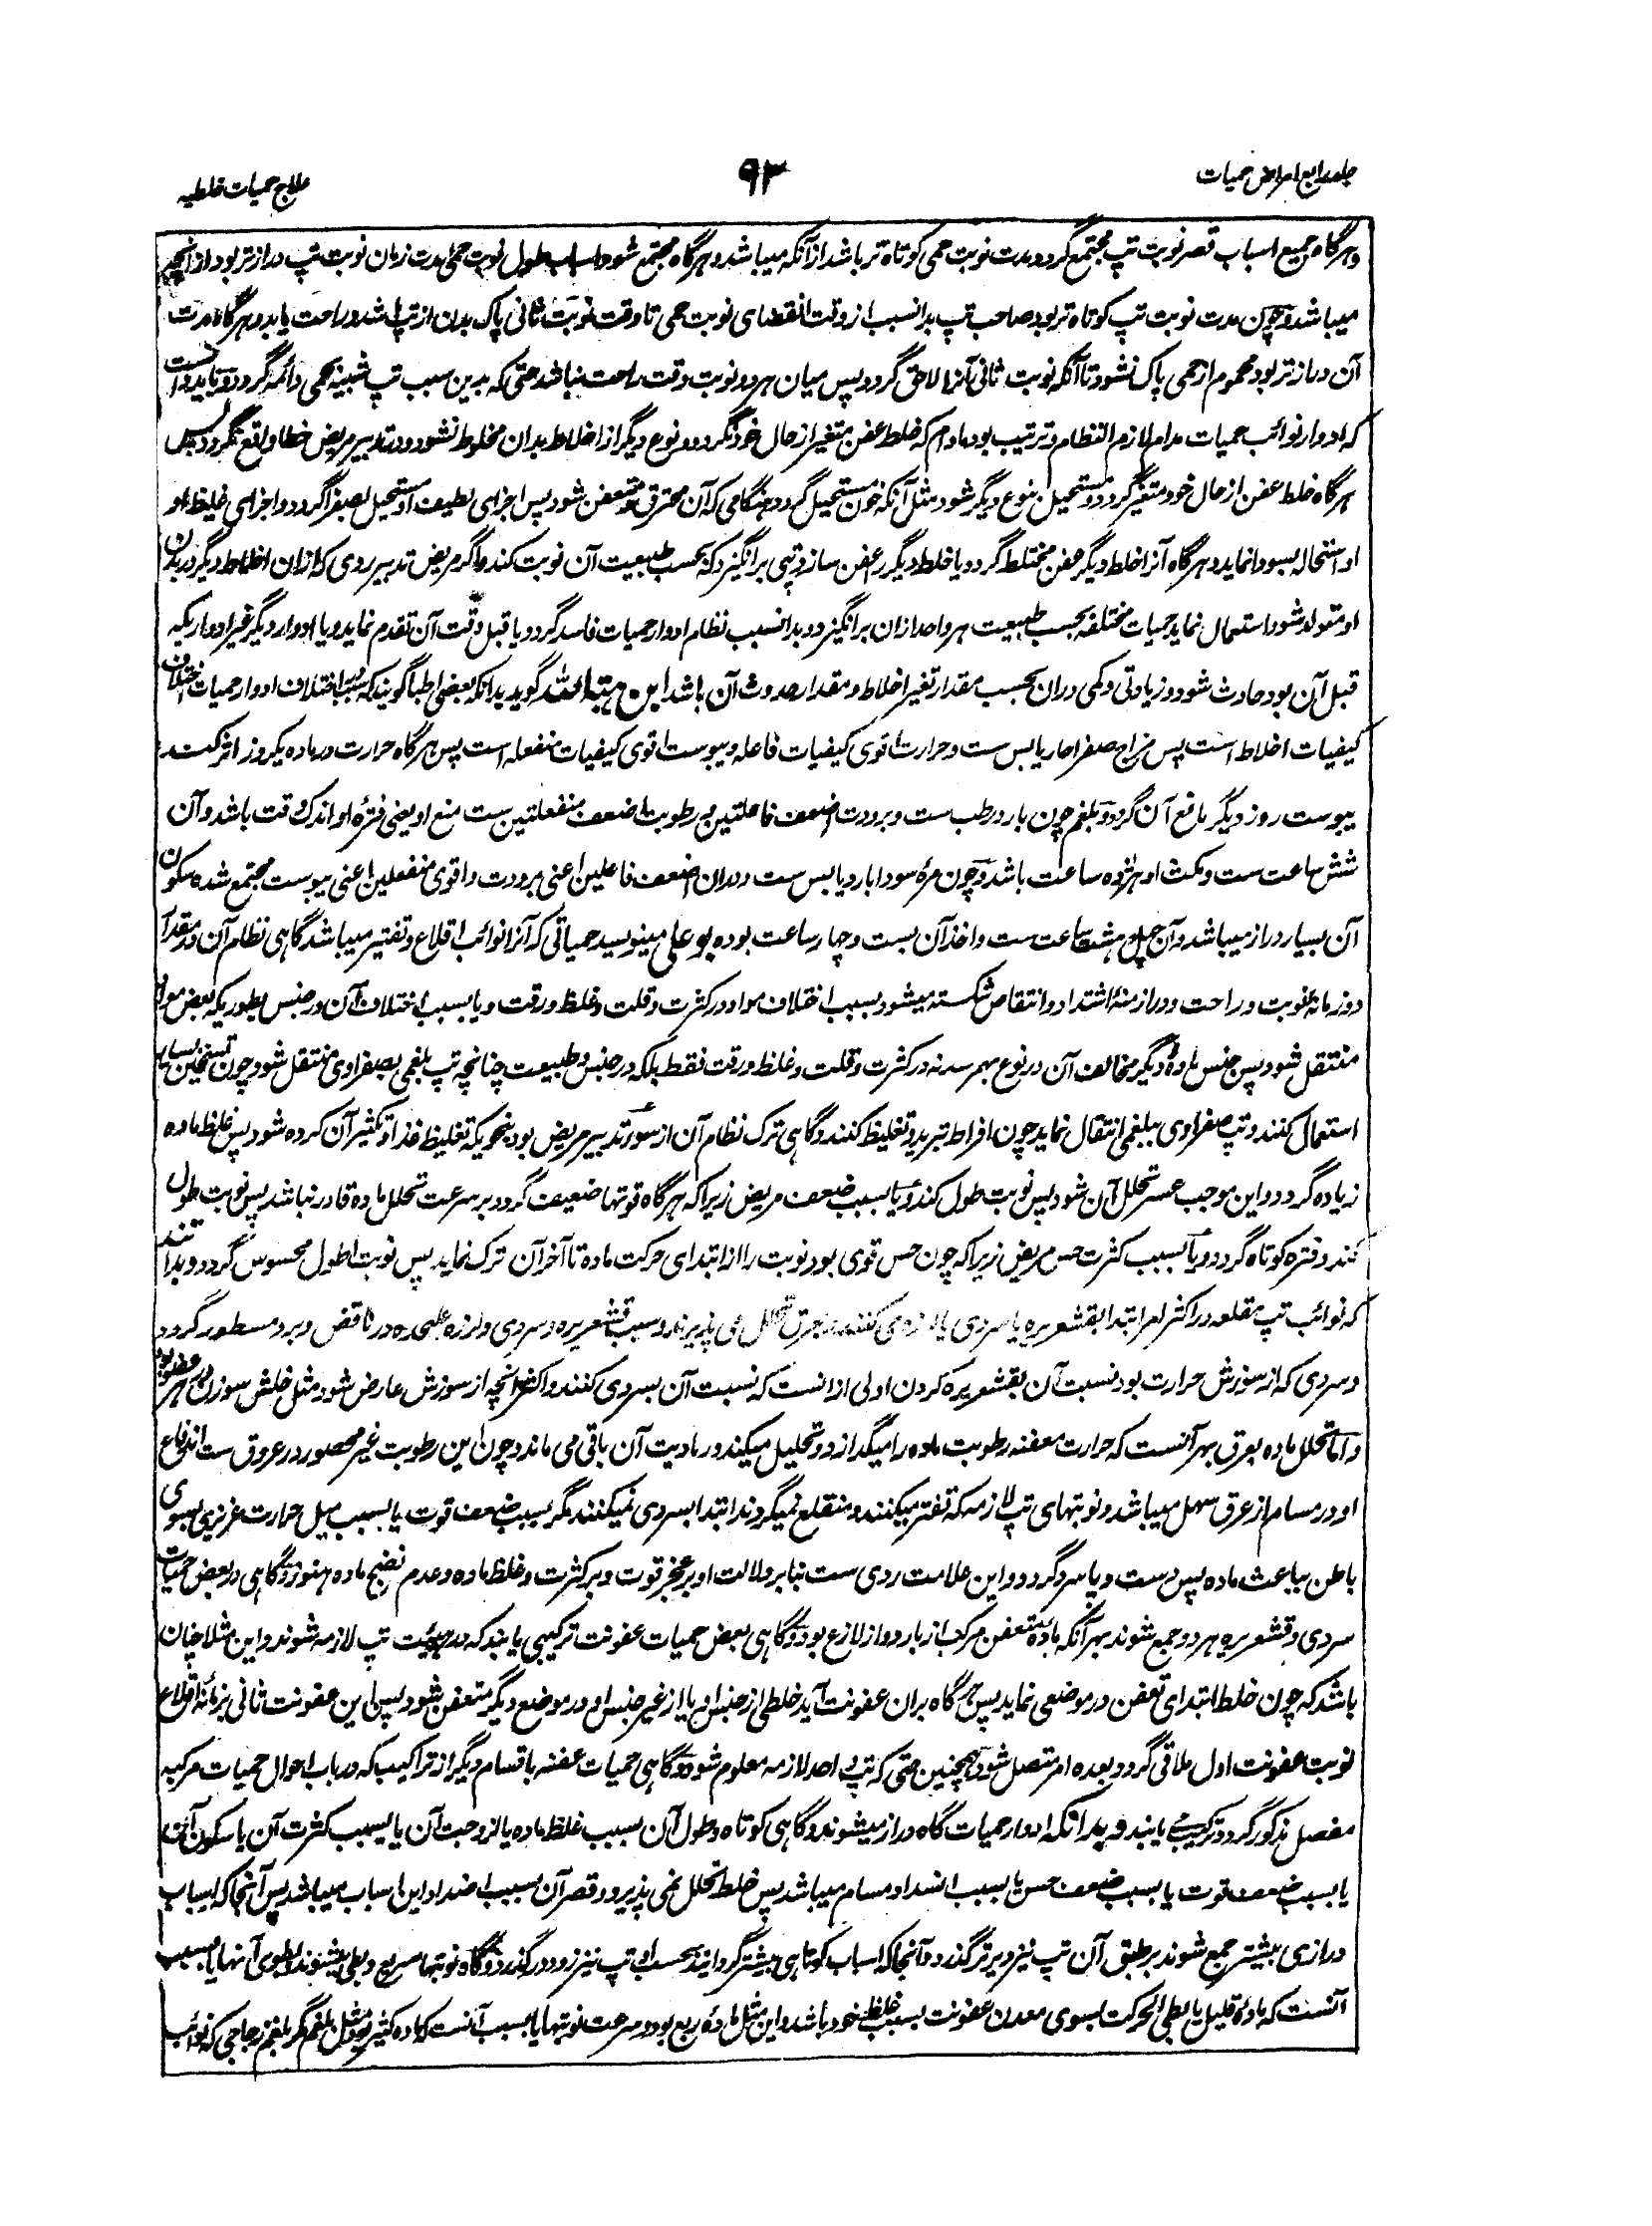 جلد رابع امراض حمیات
۹۳
علاج حمیات خلطیه
و هرگاه جمیع اسباب قصر نوبت تپ مجتمع گردد مدت نوبت حمی کوتاه تر باشد از آنکه میباشد و هرگاه مجتمع شود اسباب طول نوبت حمی مدت زمان نوبت تپ دراز تر بود از انچه
میباشد و چون مدت نوبت تپ کوتاه تر بود صاحب تپ بدانسبب از وقت انقضای نوبت حمی تا وقت نوبت ثانی پاک بدن از تپ باشد و راحت یابد و هرگاه مدت
آن دراز تر بود محموم از حمی پاک نشود تا آنکه نوبت ثانی آنرا لاحق گردد پس میان هر دو نوبت وقت راحت نباشد حتی که بدین سبب تپ شبیه بحمی دائمه گردد و باید دانست
که ادوار نوائب حمیات مدام لازم النظام و ترتیب بود مادام که خلط عفن متغیر از حال خود نگردد و نوع دیگر از اخلاط بدان مخلوط نشود و در تدبیر مریض خطا واقع نگردد پس
هرگاه خلط عفن از حال خود متغیر گردد و مستحیل بنوع دیگر شود مثل آنکه خون مستحیل گردد هنگامی که آن محترق و متعفن شود پس اجزای لطیف او مستحیل بصفرا گردد و اجزای غلیظ او
او استحاله بسودا نماید و هرگاه آنرا خلط دیگر عفن مختلط گردد یا خلط دیگر را عفن سازد تپی برانگیزد که بحسب طبیعت آن نوبت کند و اگر مریض تدبیر ردی که ازان اخلاط دیگر در بدن
او متولد شود استعمال نماید حمیات مختلفه بحسب طبیعت هر واحد ازان برانگیزد و بدانسبب نظام ادوار حمیات فاسد گردد یا قبل وقت آن تقدم نماید و یا ادوار دیگر غیر ادواریکه
قبل آن بود حادث شود و زیادتی و کمی دران بحسب مقدار تغیر اخلاط و مقدار حدوث آن باشد ابن هبة الله گوید بدانکه بعضی اطبا گویند که سبب اختلاف ادوار حمیات اختلاف
کیفیات اخلاط است پس مزاج صفرا حار یابس ست و حرارت اقوی کیفیات فاعله و یبوست اقوی کیفیات منفعله است پس هرگاه حرارت در ماده یکروز اثر کند
یبوست روز دیگر مانع آن گردد و بلغم چون بارد رطب ست و برودت اضعف فاعلتین و رطوبت اضعف منفعلتین ست منع او یعنی فترۀ او اندک وقت باشد و آن
شش ساعت ست و مکث او هژده ساعت باشد و چون مرۀ سودا بارد یابس ست و دران اضعف فاعلین اعنی برودت و اقوی منفعلین اعنی یبوست مجتمع شده سکون
آن بسیار دراز میباشد و آن چهل و هشت ساعت ست و اخذ آن بست و چهار ساعت بوده بو علی مینویسد حمیاتی که آنرا نوائب اقلاع و تفتیر میباشد گاهی نظام آن در مقدار
دوز مانۀ نوبت و راحت و در ازمنۀ اشتداد و انتقاص شکسته میشود بسبب اختلاف مواد در کثرت و قلت و غلظ و رقت و یا بسبب اختلاف آن در جنس بطوریکه بعض مواد
منتقل شود پس جنس مادۀ دیگر مخالف آن در نوع بهم رسد نه در کثرت و قلت و غلظ و رقت فقط بلکه در جنس و طبیعت چنانچه تپ بلغمی بصفراوی منتقل شود چون تسخین بسیار
استعمال کنند و تپ صفراوی ببلغمی انتقال نماید چون افراط تبرید و تغلیظ کنند و گاهی ترک نظام آن از سوء تدبیر مریض بود بنحویکه تغلیظ غذا و تکثیر آن کرده شود پس غلظ ماده
زیاده گردد و این موجب عسر تحلل آن شود پس نوبت طول کند و یا بسبب ضعف مریض زیرا که هرگاه قوتها ضعیف گردد بر سرعت تحلل ماده قادر نباشد پس نوبت طول
کند و فتره کوتاه گردد و یا بسبب کثرت حس مریض زیرا که چون حس قوی بود نوبت را از ابتدای حرکت ماده تا آخر آن ترک نماید پس نوبت اطول محسوس گردد و بدانند
که نوائب تپ مقلعه در اکثر امر ابتدا بقشعریره یا سردی یا لرزه می کنند و بعرق تحلل می پذیرند و سبب قشعریره و سردی و لرزه علیحده در ناقض و برد مسطور گردد
و سردی که از سوزش حرارت بود نسبت آن بقشعریره کردن اولی از انست که نسبت آن بسردی کنند و اکثر انچه از سوزش عارض شود مثل خلش سوزن در هر عضو بود
و اما تحلل ماده بعرق بهر آنست که حرارت معفنه رطوبت ماده را میگدازد و تحلیل میکند و رمادیت آن باقی می ماند و چون این رطوبت غیر محصور در عروق ست اندفاع
او در مسام از عرق سهل میباشد و نوبتهای تپ لازمه که تفتر میکنند و منقلع نمیگردند ابتدا بسردی نمیکنند مگر بسبب ضعف قوت یا بسبب میل حرارت غریزی بسوی
باطن بباعث ماده پس دست و پا سرد گردد و این علامت ردی ست بنا بر دلالت او بر عجز قوت و بر کثرت و غلظ ماده و عدم نضج ماده هنوز و گاهی در بعض حمیات
سردی و قشعریره هر دو جمع شوند بهر آنکه مادۀ متعفن مرکب از بارد و از لازع بود و گاهی بعض حمیات عفونت ترکیبی یابند که در حیثیت تپ لازمه شوند و این مثلا چنان
باشد که چون خلط ابتدای تعفن در موضعی نماید پس هرگاه بران عفونت آید خلطی از جنس او یا از غیر جنس او در موضع دیگر متعفن شود پس این عفونت ثانی بزمانۀ اقلاع
نوبت عفونت اول ملاقی گردد و بعده امر متصل شود همچنین حتی که تپ واحد لازمه معلوم شود و گاهی حمیات عفنه باقسام دیگر از تراکیب که در باب احوال حمیات مرکبه
مفصل مذکور گردد ترکیب یابند و بدانکه ادوار حمیات گاه دراز میشوند و گاهی کوتاه و طول آن بسبب غلظ ماده یا لزوجت آن یا بسبب کثرت آن یا سکون آن
یا بسبب ضعف قوت یا بسبب ضعف حس یا بسبب انسداد مسام میباشد پس خلط تحلل نمی پذیرد و قصر آن بسبب اضداد این اسباب میباشد پس آنجا که اسباب
درازی بیشتر جمع شوند بر طبق آن تپ نیز دیرتر گذرد و آنجا که اسباب کوتاهی بیشتر گرد ایند بحسب او تپ نیز زود در گذرد و گاه نوبتها سریع و بطی میشوند و بطوی آنها یا بسبب
آنست که مادۀ قلیل یا بطی الحرکت بسوی معدن عفونت بسبب غلظ خود باشد و این مثل مادۀ ربع بود و سرعت نوبتها یا بسبب آنست که ماده کثیر بود مثل بلغم مگر بلغم زجاجی که نوائب